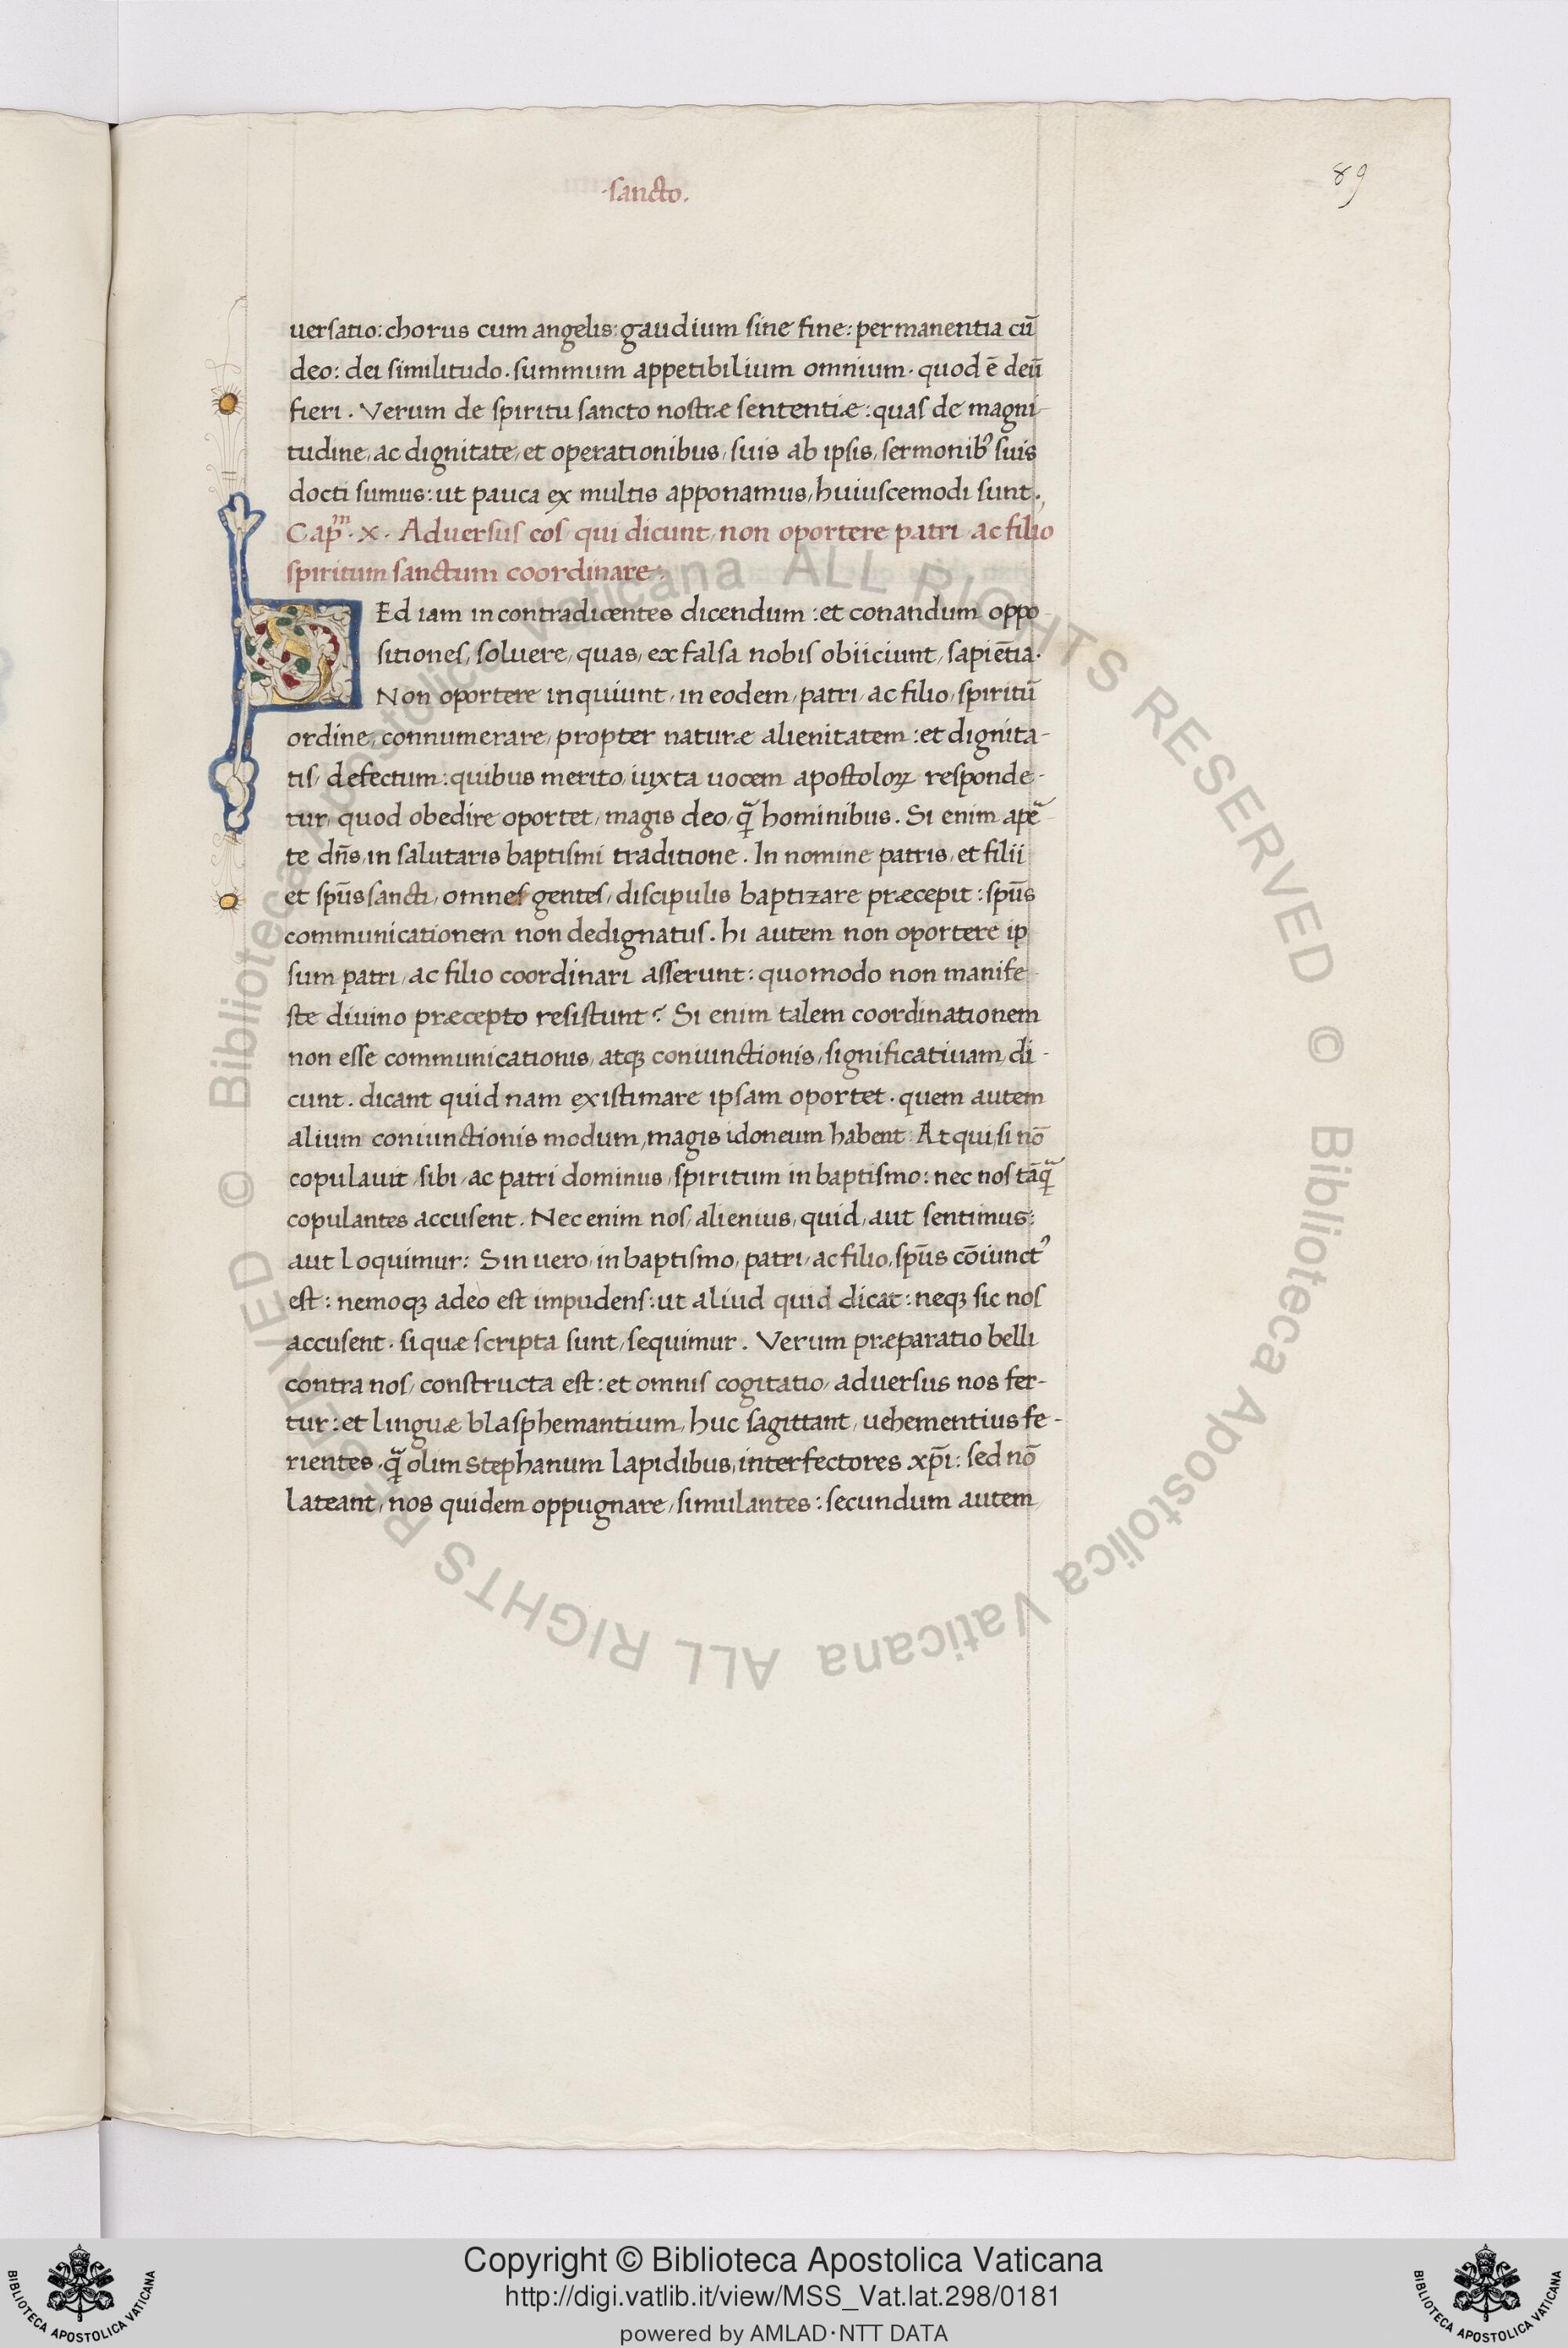 ·sancto.
89
uersatio: chorus cum angelis: gaudium sine fine: permanentia cū
deo: dei similitudo. summum appetibilium omnium. quod ē deū
fieri. Verum de spiritu sancto nostræ sententiæ: quas de magni-
tudine, ac dignitate, et operationibus, suis ab ipsis, sermonibꝰ suis
docti sumus: ut pauca ex multis apponamus, huiuscemodi sunt.,
Cap̄ᵐ. x. Aduersus eos, qui dicunt, non oportere patri, ac filio
spiritum sanctum coordinare.
SEd iam in contradicentes dicendum: et conandum oppo-
sitiones, soluere, quas, ex falsa nobis obiiciunt, sapiētia.
Non oportere inquiunt, in eodem, patri, ac filio, spiritū
ordine, connumerare, propter naturæ alienitatem: et dignita-
tis, defectum: quibus merito, iuxta uocem apostoloꝝ responde-
tur, quod obedire oportet, magis deo, q̃ hominibus. Si enim apẽ-
te dn̄s, in salutaris baptismi traditione. In nomine patris, et filii
et spūs sancti, omnes gentes, discipulis baptizare præcepit: spūs
communicationem non dedignatus. hi autem non oportere ip
sum patri, ac filio coordinari asserunt: quomodo non manife-
ste diuino præcepto resistunt? Si enim talem coordinationem
non esse communicationis, atqꝫ coniunctionis, significatiuam, di-
cunt. dicant quid nam existimare ipsam oportet. quem autem
alium coniunctionis modum, magis idoneum habent: At qui, si nō
copulauit, sibi, ac patri dominus, spiritum in baptismo: nec nos tāq̃
copulantes accusent. Nec enim nos, alienius, quid, aut sentimus:
aut loquimur: Sin uero, in baptismo, patri, ac filio, spūs cōiunctꝰ
est: nemoqꝫ adeo est impudens: ut aliud quid dicat: neqꝫ sic nos
accusent. si quæ scripta sunt, sequimur. Verum præparatio belli
contra nos, constructa est: et omnis cogitatio, aduersus nos fer-
tur: et linguæ blasphemantium, huc sagittant, uehementius fe-
rientes. q̃ olim Stephanum lapidibus, interfectores xp̄i: sed nō
lateant, nos quidem oppugnare, simulantes: secundum autem
© Biblioteca Apostolica Vaticana ALL RIGHTS RESERVED © Biblioteca Apostolica Vaticana ALL RIGHTS RESERVED
Copyright © Biblioteca Apostolica Vaticana
http://digi.vatlib.it/view/MSS_Vat.lat.298/0181
powered by AMLAD·NTT DATA
BIBLIOTECA APOSTOLICA VATICANA
BIBLIOTECA APOSTOLICA VATICANA